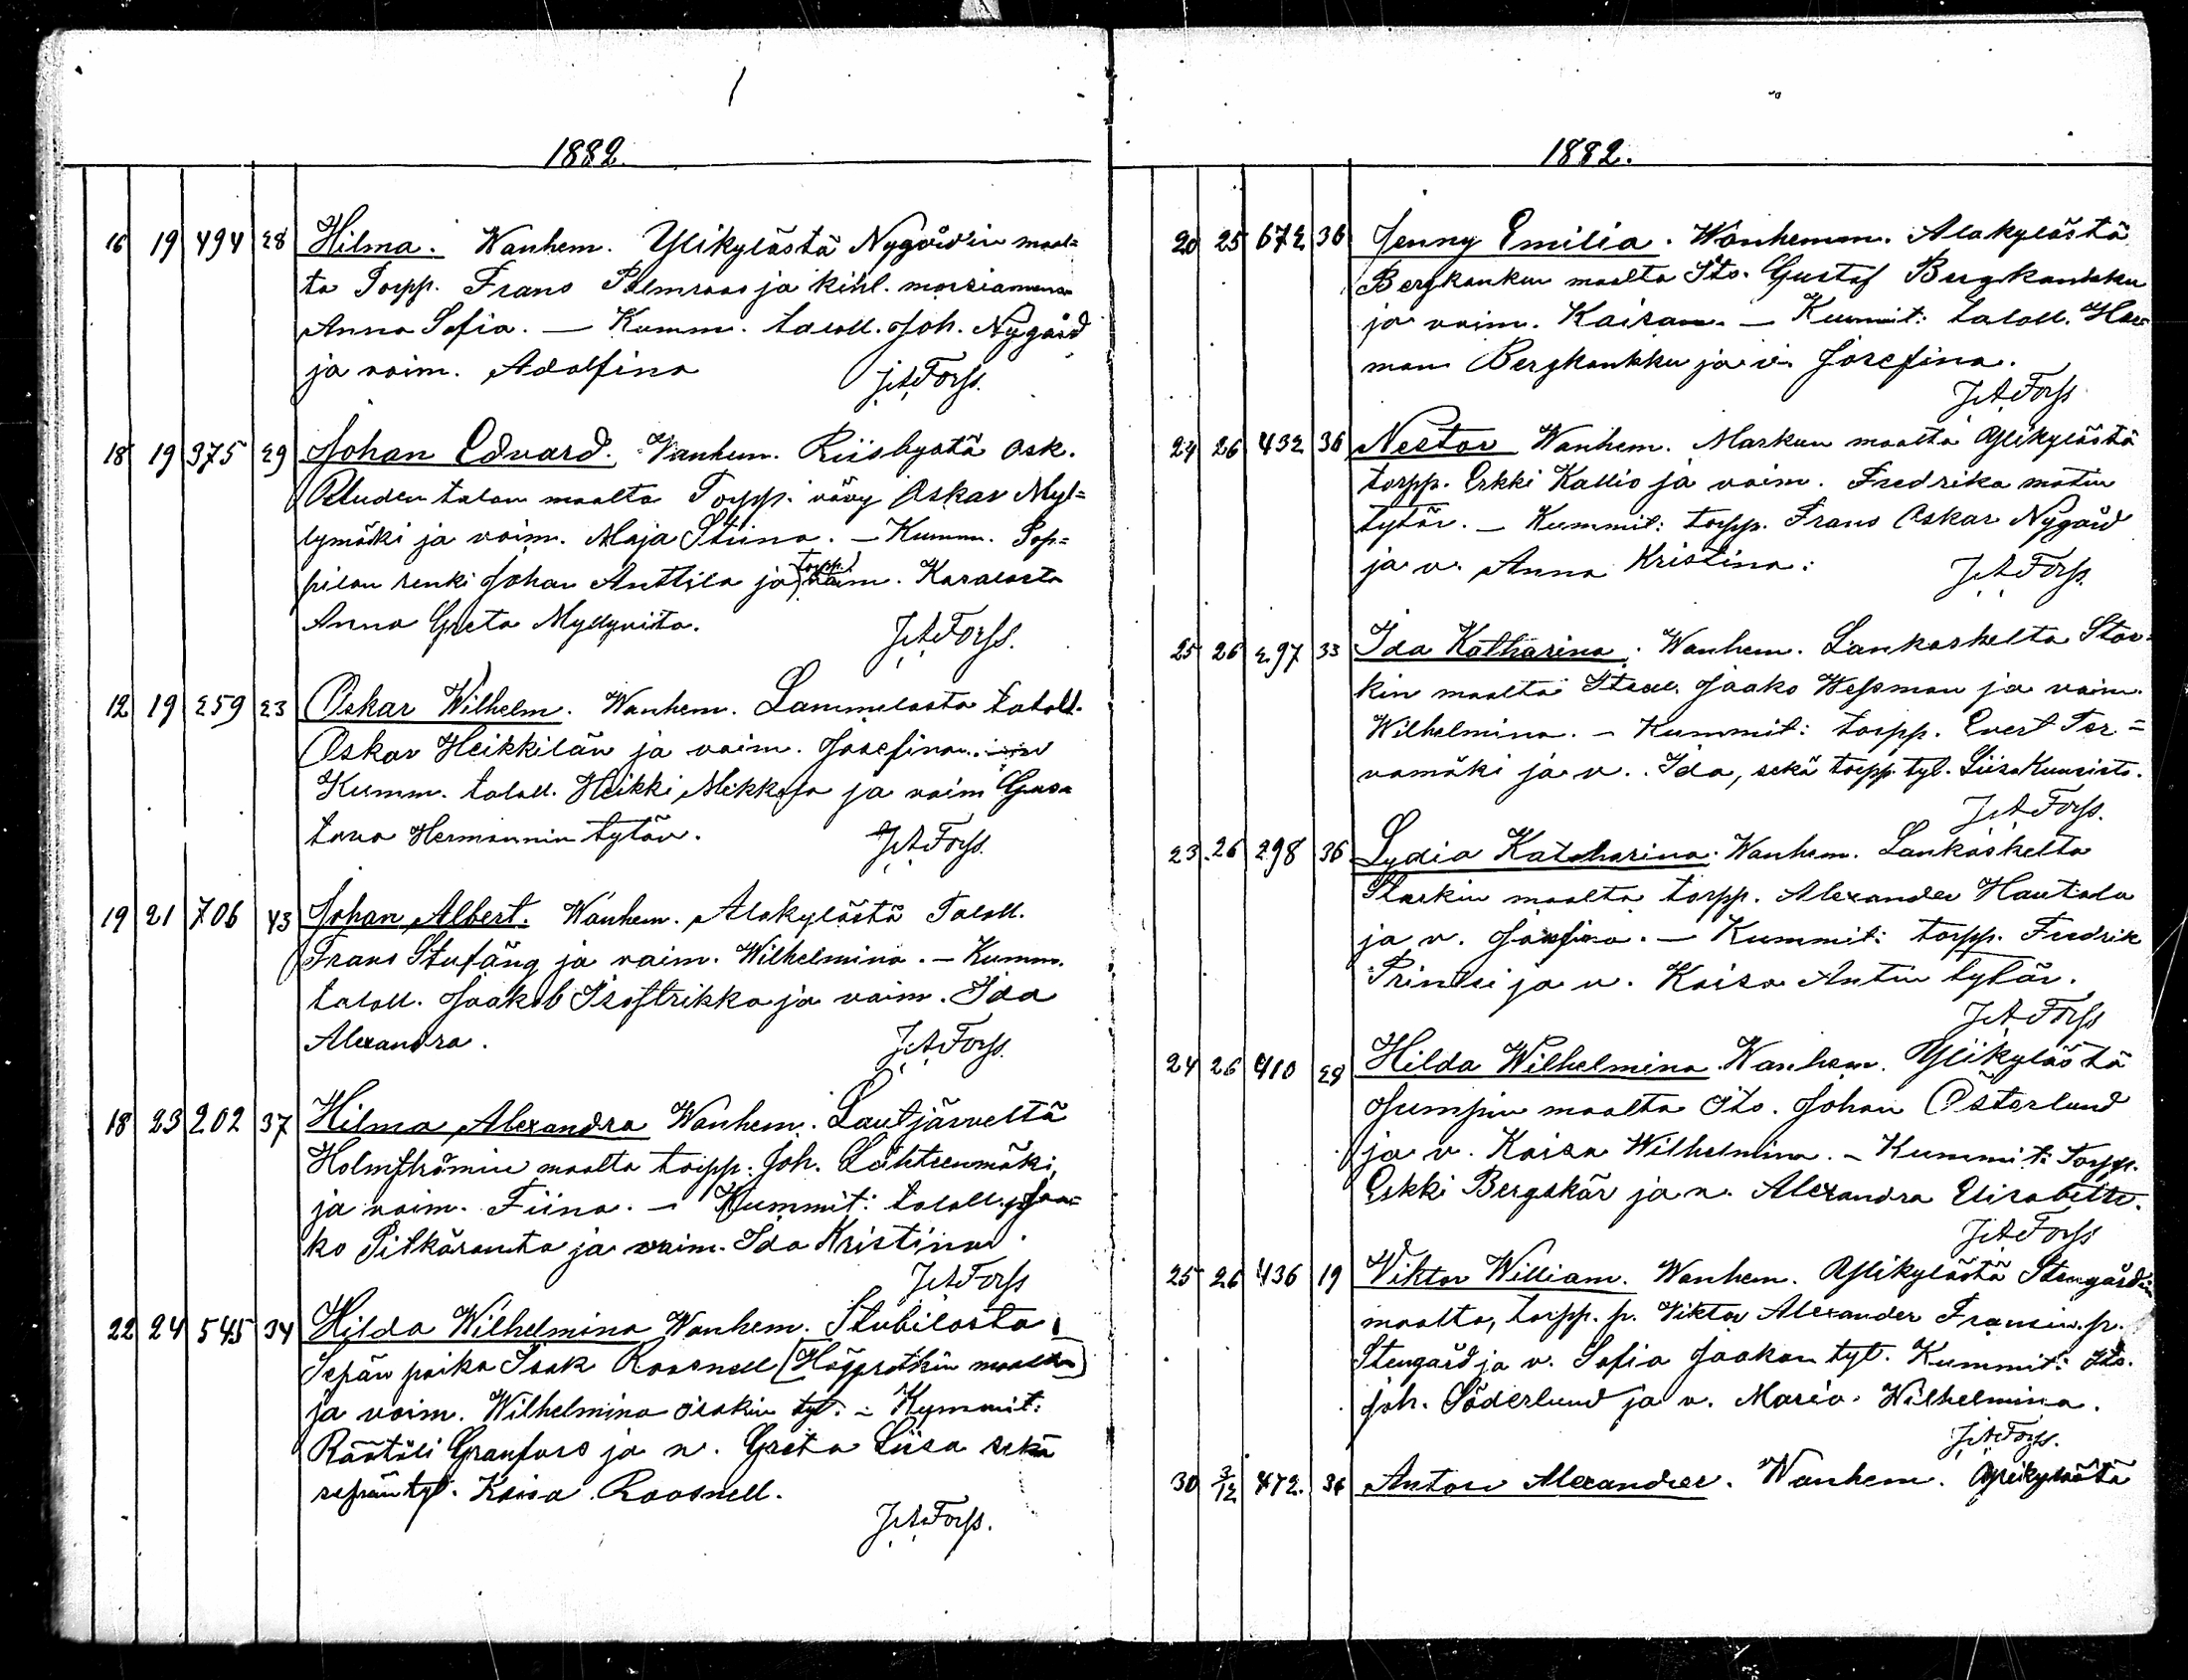 1882.
16 19 494 28 Hilma. Wanhem. Ylikylästä Nygårdin maal=
ta Torpp. Frans Palmroos ja kihl. morsiamensa
Anna Sofia. — Kumm. taloll. Joh. Nygård
ja vaim. Adolfina
J.A.Forss.
18 19 375 29 Johan Edvard. Wanhem. Riisbystä Osk.
talon maalta Torpp. vävy Oskar Myl=
lymäki ja vaim. Maja Stiina. — Kumm. Sop=
pilan renki Johan Anttila ja torpp. vaim. Karalasta
Anna Greta Myllyviita.
J.A.Forss.
12 19 259 23 Oskar Wilhelm. Wanhem. Lammelasta taloll.
Oskar Heikkilän ja vaim. Josefina.
Kumm. taloll. Heikki Mikkola ja vaim Gus=
tava Hermannin tytär.
J.A.Forss.
19 21 706 43 Johan Albert. Wanhem. Alakylästä Taloll.
Frans Stufäng ja vaim. Wilhelmina. — Kumm.
taloll. Jaakob Isoströkka ja vaim. Ida
Alexandra.
J.A.Forss.
18 23 202 37 Hilma Alexandra Wanhem. Lautjärveltä
Holmströmin maalta torpp. Joh. Lähteenmäki,
ja vaim. Fiina. — Kummit: taloll. Jaa=
ko Pitkäranta ja vaim. Ida Kristina.
J.A.Forss
22 24 545 34 Hilda Wilhelmina Wanhem. Stubilasta
Sepän poika Isak Roosnell (maalta)
ja vaim. Wilhelmina Isakin tyt. — Kummit:
Räätöli Granfors ja v. Greta Liisa sekä
sepän tyt. Kaisa Roosnell.
J.A.Forss.
1882.
20 25 672 36 Jenny Emilia. Wanhemm. Alakylästä
Bergkaukun maalta Its. Gustaf Bergkaukku
ja vaim. Kaisa. — Kummit: taloll. Her=
man Bergkaukku ja v. Josefina.
J.A.Forss
24 26 432 36 Nestor Wanhem. Markun maalta Ylikylästä
torpp. Erkki Kallio ja vaim. Fredrika matin
tytär. — Kummit: torpp. Frans Oskar Nygård
ja v. Anna Kristina.
J.A.Forss.
25 26 297 33 Ida Katharina. Wanhem. Lankoskelta Stor=
kin maalta Jaako Wessman ja vaim.
Wilhelmina. — Kummit: torpp. Evert Ter=
vamäki ja v. Ida, sekä torpp. tyt. Liisa Kuusisto.
J.A.Forss.
23 26 298 36 Lydia Katharina. Wanhem. Lankoskelta
Storkin maalta torpp. Alexander Hautala
ja v. Josefina. — Kummit: torpp. Fredrik
Printsi ja v. Kaisa Antin tytär.
J.A.Forss
24 26 410 29 Hilda Wilhelmina Wanhem. Ylikylästä
Jumpin maalta Its. Johan Österlund
ja v. Kaisa Wilhelmina. — Kummit: Torpp.
Erkki Bergskär ja v. Alexandra Elisabetta.
J.A.Forss
25 26 436 19 Viktor William. Wanhem. Ylikylästä Stengårdin
maalta, torpp. p. Viktor Alexander Fransin p.
Stengård ja v. Sofia Jaakon tyt. Kummit: Its.
Joh. Söderlund ja v. Maria Wilhelmina.
J.A.Forss.
30 3/12 472. 36 Anton Alexander. Wanhem. Ylikylästä